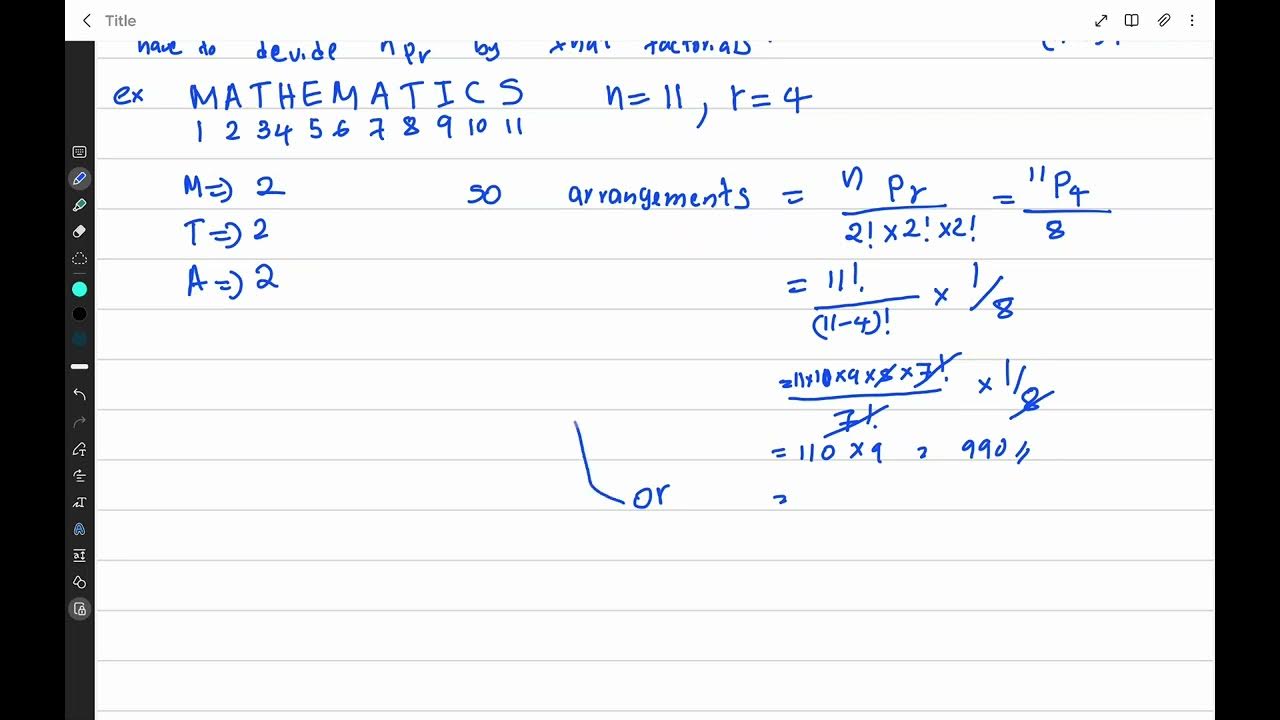 Title
have to devide nPr by
ex MATHEMATICS n = 11, r = 4
1 2 3 4 5 6 7 8 9 10 11
M => 2 so arrangements = nPr / 2! × 2! × 2! = 11P4 / 8
T => 2
A => 2 = 11! / (11-4)! × 1/8
= 11×10×9×8×7! / 7! × 1/8
= 110 × 9 = 990 //
or =